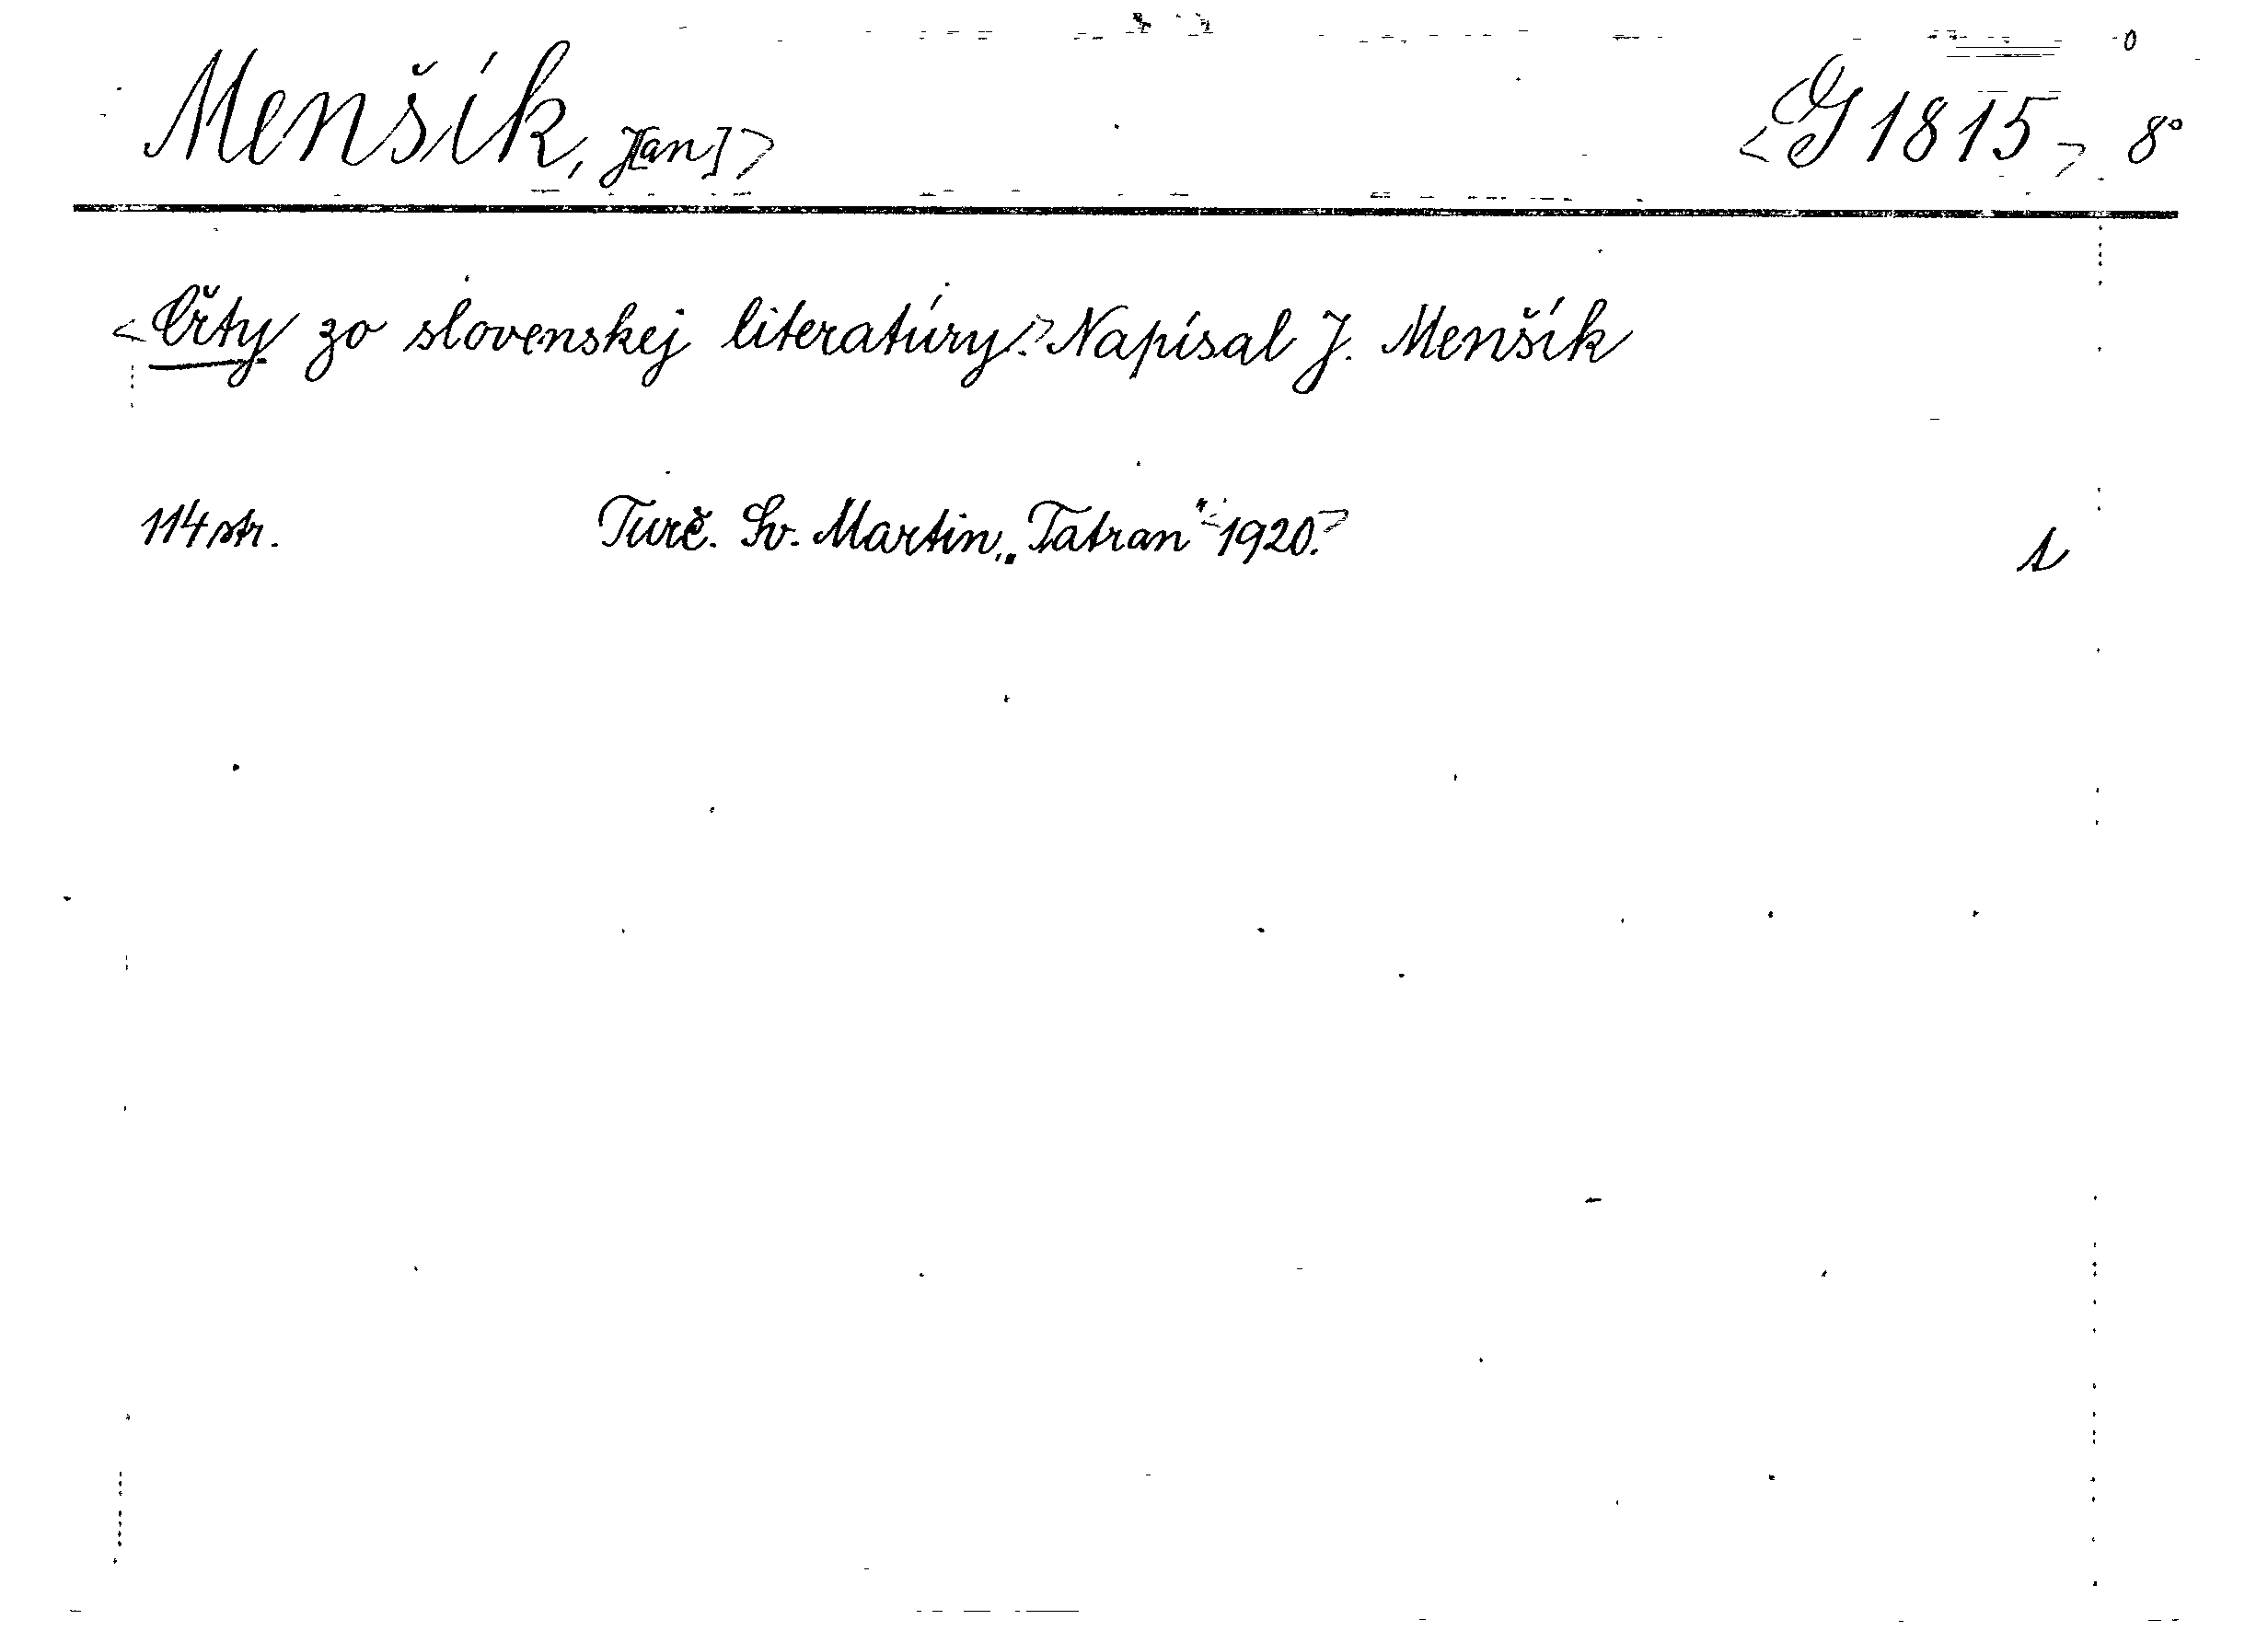 Menšík, J[an]> <G 1815> 8°
<Črty zo slovenskej literatúry.> Napísal J. Menšík
114 str. Turč. Sv. Martin, „Tatran" <1920.>